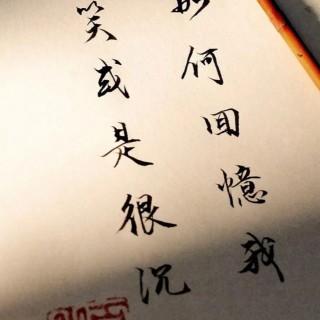 如何回憶我
笑或是很沉